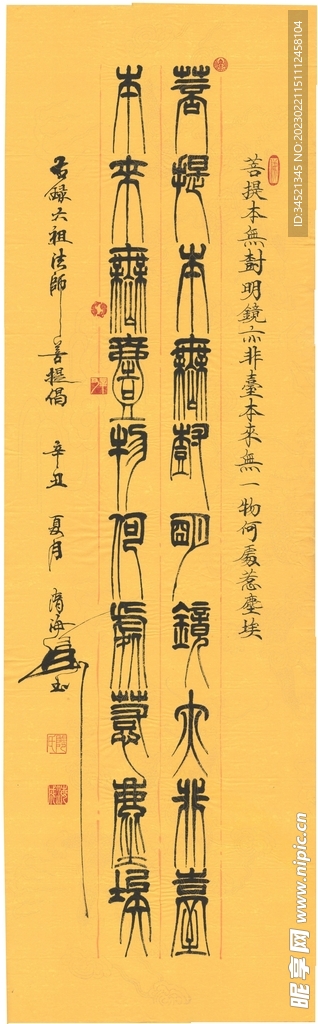 菩提本無尌明鏡亦非臺本來無一物何處惹塵埃
菩提本無尌明鏡亦非臺
本來無壹物何處惹塵埃
右録六祖法師菩提偈 辛丑 夏月
ID:34521345 NO:20230221151112458104
昵享网 www.nipic.cn